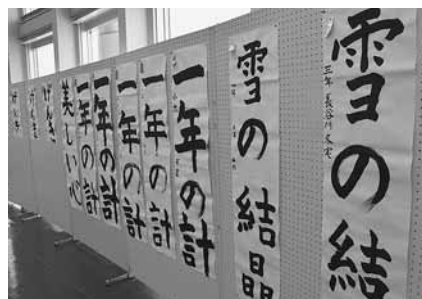 雪の結
三年 長谷川
雪の結晶
一年の計
一年の計
一年の計
一年の計
一年の計
美しい心
げんき
げんき
げんき